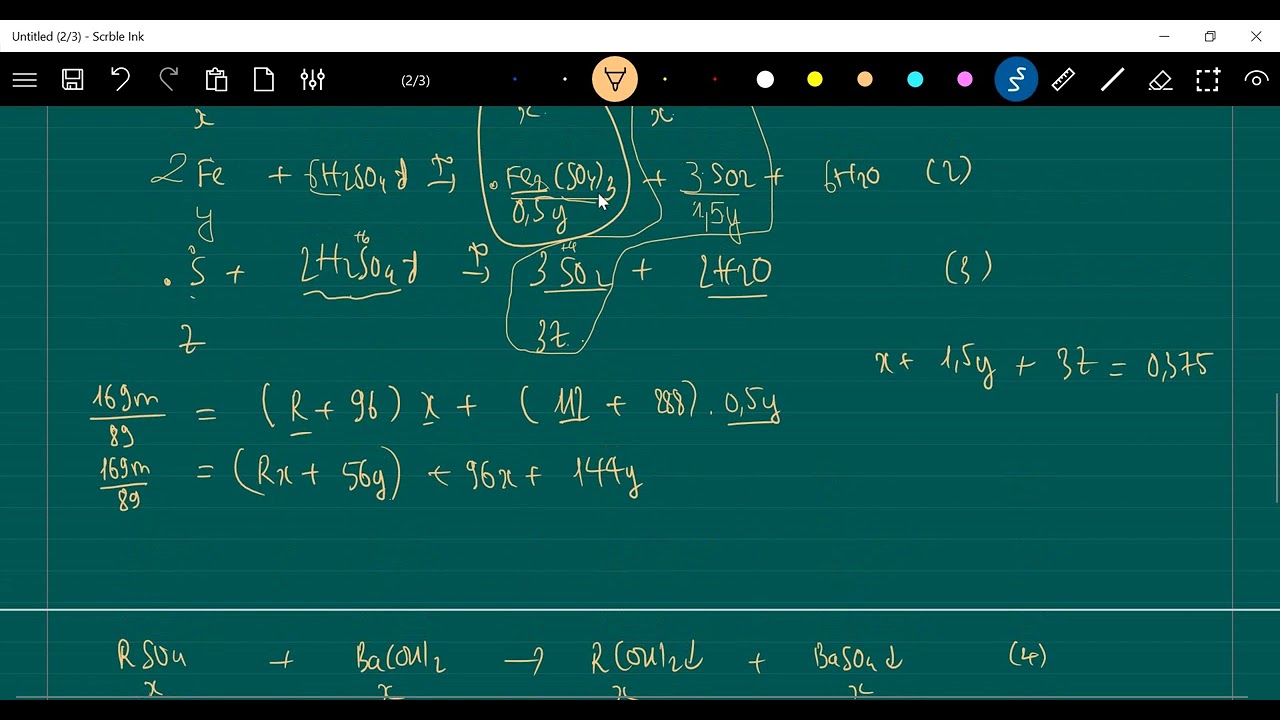 Untitled (2/3) - Scrble Ink
(2/3)
x x x
2Fe + 6H2SO4 đ t° → Fe2(SO4)3 + 3SO2 + 6H2O (2)
y 0,5y 1,5y
0 +6 +4
S + 2H2SO4 đ t° → 3SO2 + 2H2O (3)
z 3z
x + 1,5y + 3z = 0,375
169m/89 = (R + 96) x + (112 + 288) . 0,5y
169m/89 = (Rx + 56y) + 96x + 144y
RSO4 + Ba(OH)2 → R(OH)2↓ + BaSO4↓ (4)
x x x x